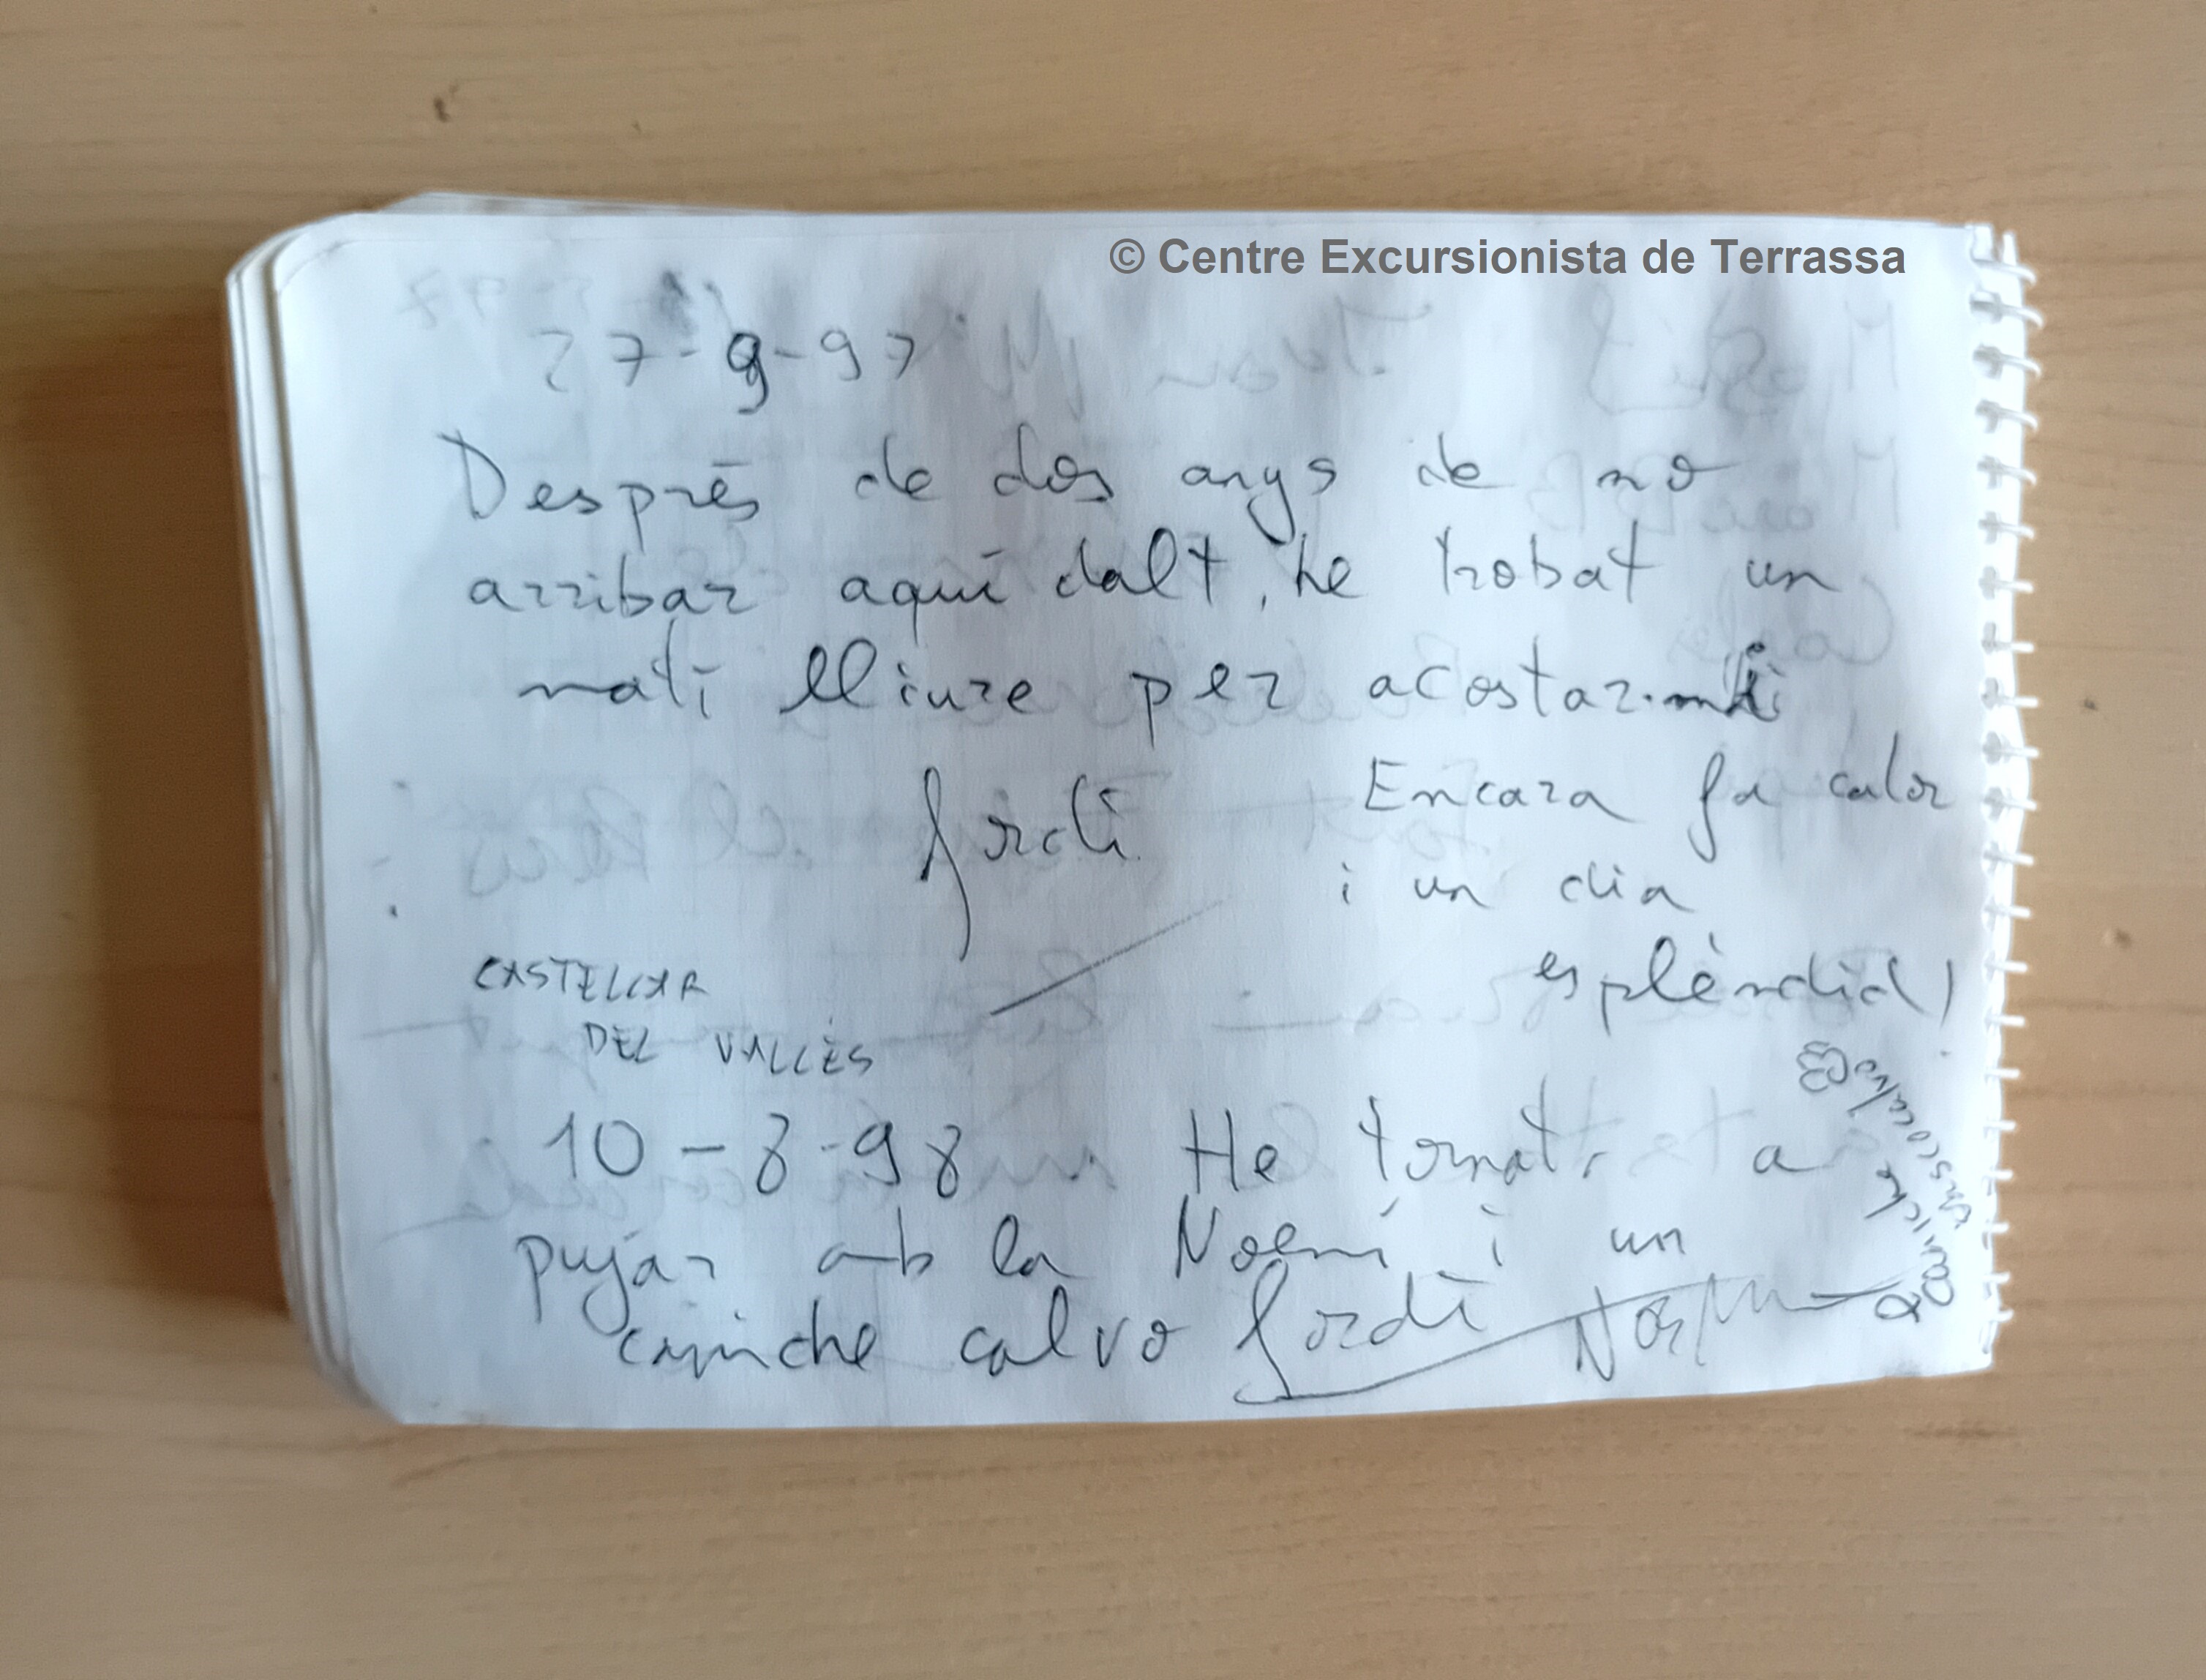 © Centre Excursionista de Terrassa
27-9-97
Després de dos anys de no
arribar aquí dalt, he trobat un
matí lliure per acostar-m'hi
Jordi
Encara fa calor
i un dia
esplèndid!
CASTELLAR
DEL VALLÈS
10-8-98 He tornat a
pujar amb la Noemí i un
caniche calvo Jordi
caniche